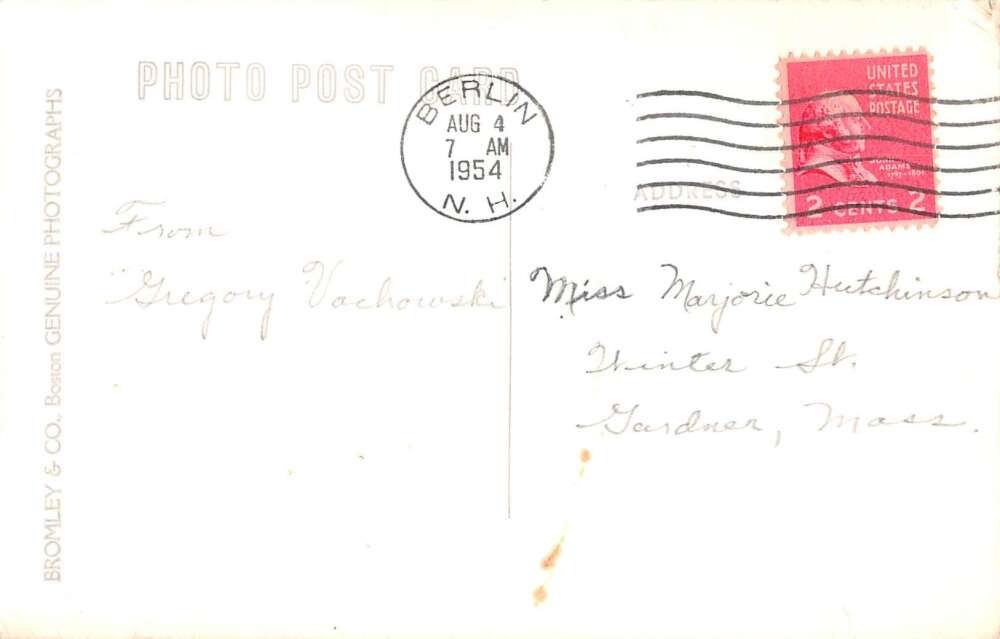 PHOTO POST CARD
BROMLEY & CO., Boston GENUINE PHOTOGRAPHS
BERLIN
AUG 4
7 AM
1954
N. H.
UNITED
STATES
POSTAGE
JOHN
ADAMS
1797-1801
2 CENTS 2
ADDRESS
From
"Gregory Vachowski
Miss Marjorie Hutchinson
Winter St.
Gardner, Mass.